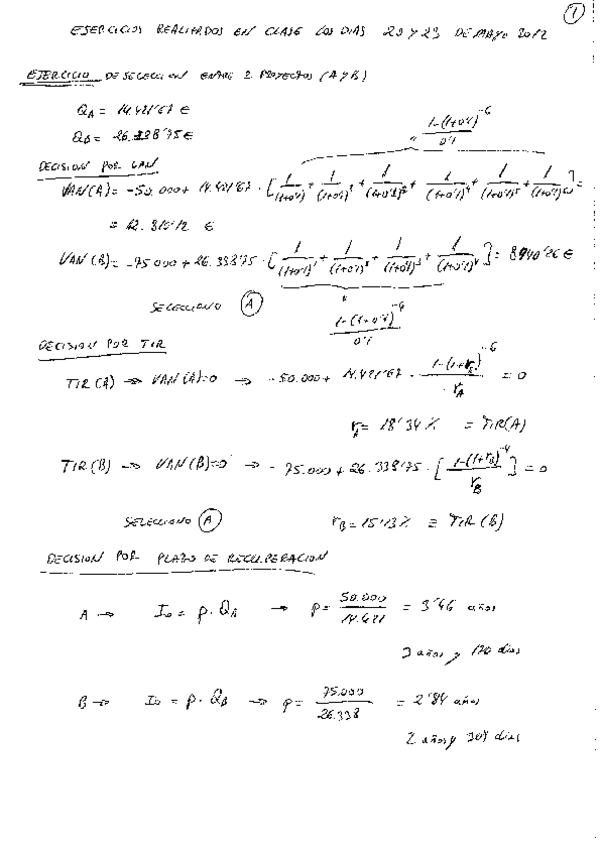 1
EJERCICIOS REALIZADOS EN CLASE LOS DIAS 23 Y 29 DE MAYO 2012
EJERCICIO DE SELECCION ENTRE 2 PROYECTOS (A y B)
QA = 14.421'67 €
QB = 26.338'75 €
1-(1+0'1)^-6
0'1
DECISION POR VAN
VAN(A) = -50.000 + 14.421'67 · [1/(1+0'1) + 1/(1+0'1)² + 1/(1+0'1)³ + 1/(1+0'1)⁴ + 1/(1+0'1)⁵ + 1/(1+0'1)⁶] =
= 12.810'12 €
VAN(B) = -75.000 + 26.338'75 · [1/(1+0'1)¹ + 1/(1+0'1)² + 1/(1+0'1)³ + 1/(1+0'1)⁴] = 8.490'26 €
SELECCIONO A
1-(1+0'1)^-4
0'1
DECISION POR TIR
TIR(A) → VAN(A)=0 → -50.000 + 14.421'67 · 1-(1+rA)^-6 / rA = 0
rA = 18'34 % = TIR(A)
TIR(B) → VAN(B)=0 → -75.000 + 26.338'75 · [1-(1+rB)^-4 / rB] = 0
SELECCIONO A rB = 15'13 % ≡ TIR(B)
DECISION POR PLAZO DE RECUPERACION
A → I₀ = p · QA → p = 50.000 / 14.421 = 3'46 años
3 años y 170 dias
B → I₀ = p · QB → p = 75.000 / 26.338 = 2'84 años
2 años y 307 dias